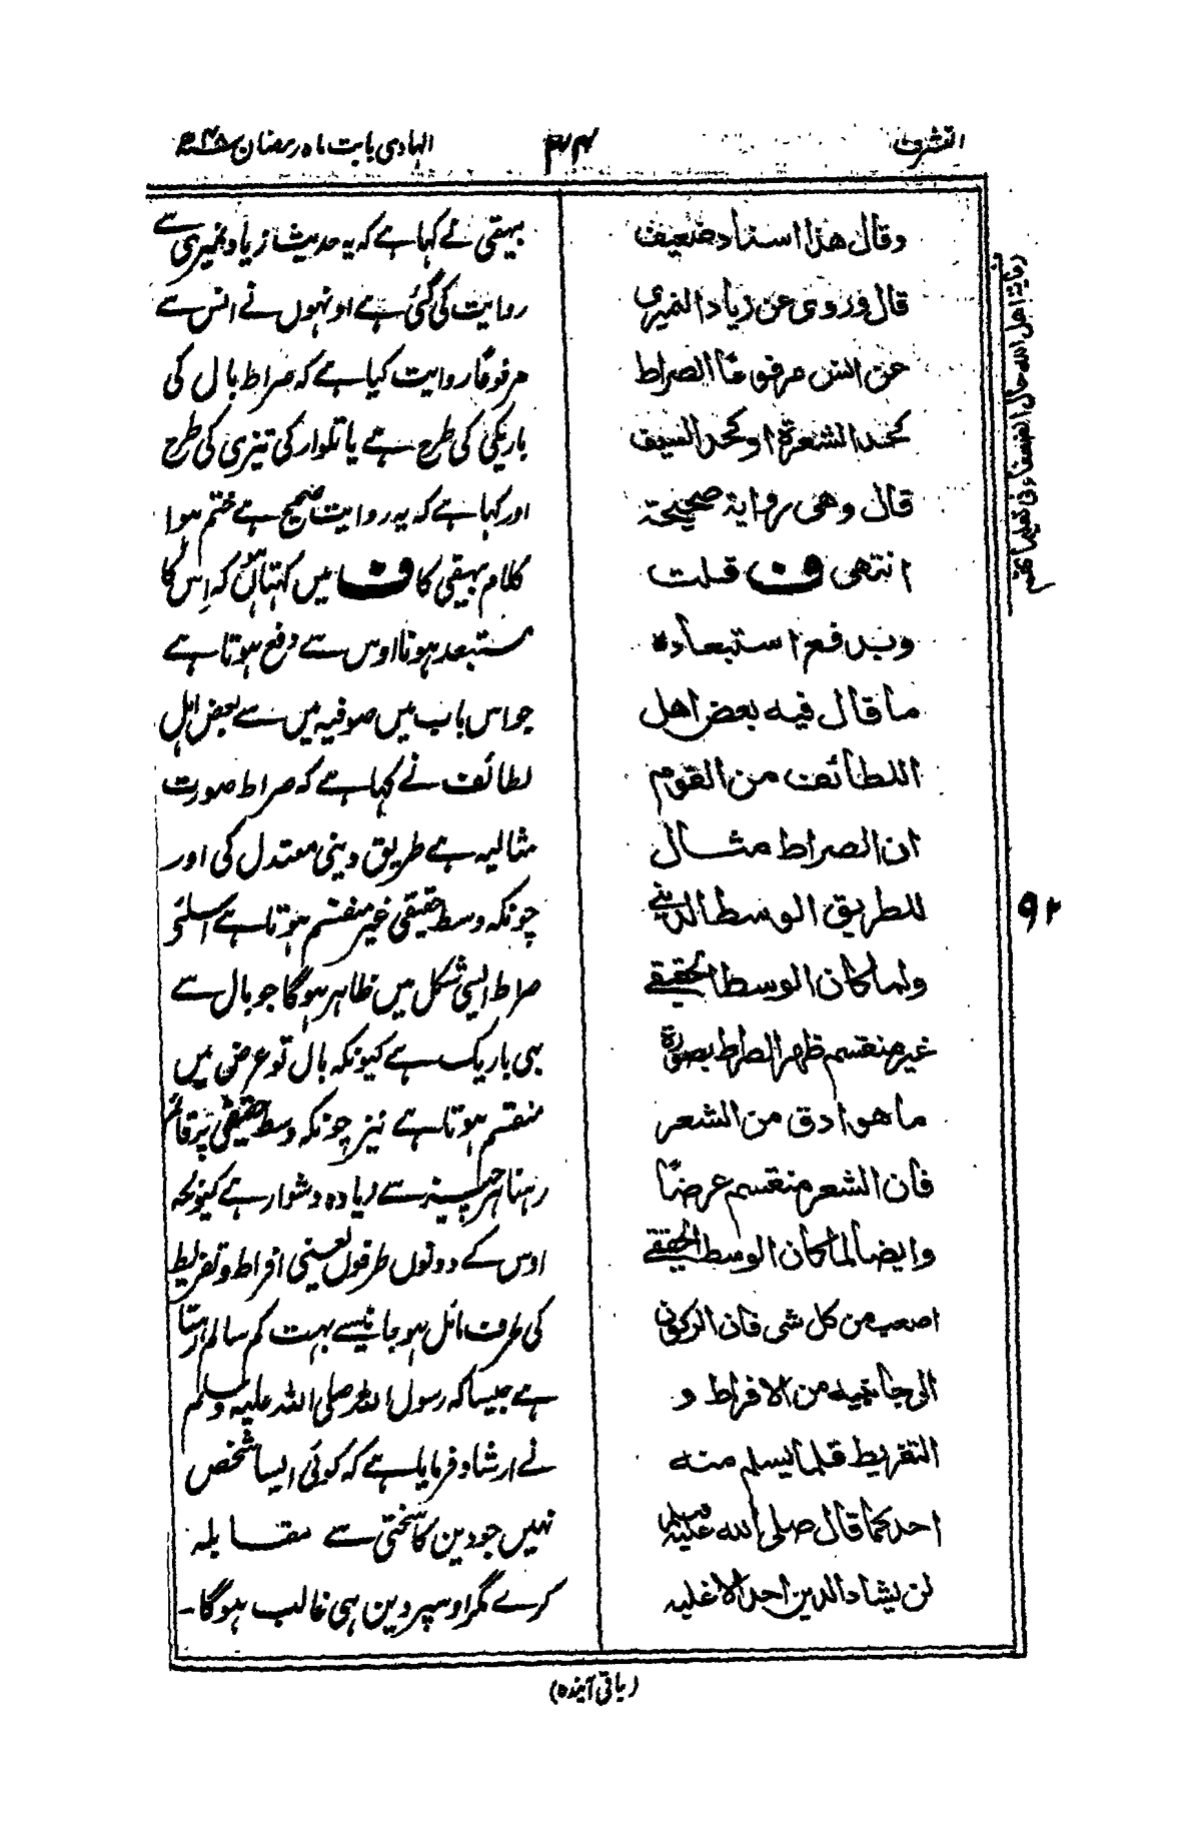 التشرف
۳۴
الہادی بابت ماہ رمضان ۴۸ھ
وقال هذا اسناد ضعيف
قال وروى عن زياد النميرى
عن انس مرفوعًا الصراط
كحد الشعرة او كحد السيف
قال وهى رواية صحيحة
انتهى ف قلت
ويدفع استبعاده
ما قال فيه بعض اهل
اللطائف من القوم
ان الصراط مثال
للطريق الوسط الدينى
ولما كان الوسط الحقيقے
غير منقسم ظهر الصراط بصورة
ما هو ادق من الشعر
فان الشعر منقسم عرضًا
وايضا لما كان الوسط الحقيقے
اصعب من كل شى فان الركون
الى جانبيه من الافراط و
التفريط قلما يسلم منه
احد كما قال صلى الله عليه وسلم
لن يشاد الدين احد الا غلبه
بیہقی نے کہا ہے کہ یہ حدیث زیاد نمیری سے
روایت کی گئی ہے اونہوں نے انس سے
مرفوعًا روایت کیا ہے کہ صراط بال کی
باریکی کی طرح ہے یا تلوار کی تیزی کی طرح
اور کہا ہے کہ یہ روایت صحیح ہے ختم ہوا
کلام بیہقی کا ف میں کہتا ہوں کہ اِس کا
مستبعد ہونا اوس سے دفع ہوتا ہے
جو اس باب میں صوفیہ میں سے بعض اہل
لطائف نے کہا ہے کہ صراط صورت
مثالیہ ہے طریق دینی معتدل کی اور
چونکہ وسط حقیقی غیر منقسم ہوتا ہے اسلئے
صراط ایسی شکل میں ظاہر ہوگا جو بال سے
بھی باریک ہے کیونکہ بال تو عرض میں
منقسم ہوتا ہے نیز چونکہ وسط حقیقی پر قائم
رہنا ہر چیز سے زیادہ دشوار ہے کیونکہ
اوس کے دونوں طرفوں یعنی افراط و تفریط
کی طرف مائل ہو جانیسے بہت کم سالم رہتا
ہے جیسا کہ رسول اللہ صلی اللہ علیہ وسلم
نے ارشاد فرمایا ہے کہ کوئی ایسا شخص
نہیں جو دین کا سختی سے مقابلہ
کرے مگر اوسپر دین ہی غالب ہوگا۔
۹۲
(باقی آیندہ)